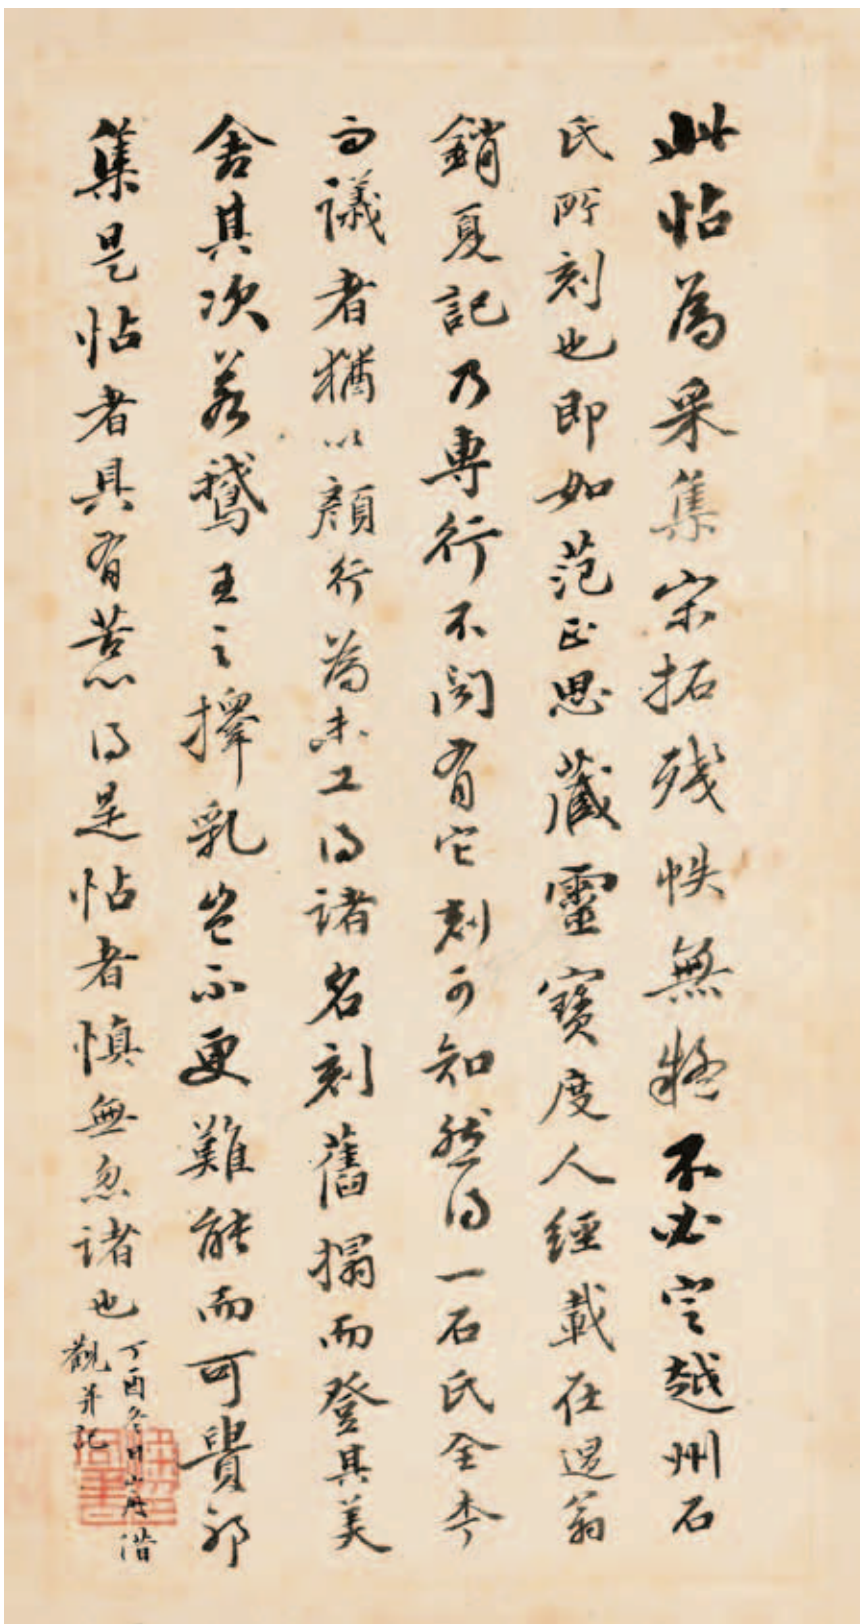 此帖為采集宋拓殘帙無疑不必定越州石
氏所刻也即如范正思藏靈寶度人經載在退翁
銷夏記乃專行不聞有它刻可知然得一石氏全本
而議者猶以顏行為未工得諸名刻舊搨而登其美
舍其次若鵝王之擇乳豈不更難能而可貴耶
集是帖者具有苦心得是帖者慎無忽諸也
丁酉冬日山舟借
觀并記